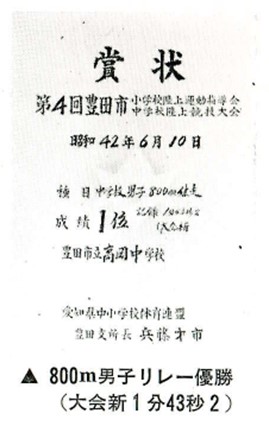 賞状
第4回豊田市小学校陸上運動指導会
中学校陸上競技大会
昭和42年6月10日
種目 中学校男子800m継走
成績 1位 記録 1分43秒2
大会新
豊田市立高岡中学校
愛知県中小学校体育連盟
豊田支所長 兵藤才市
▲ 800m男子リレー優勝
(大会新1分43秒2)